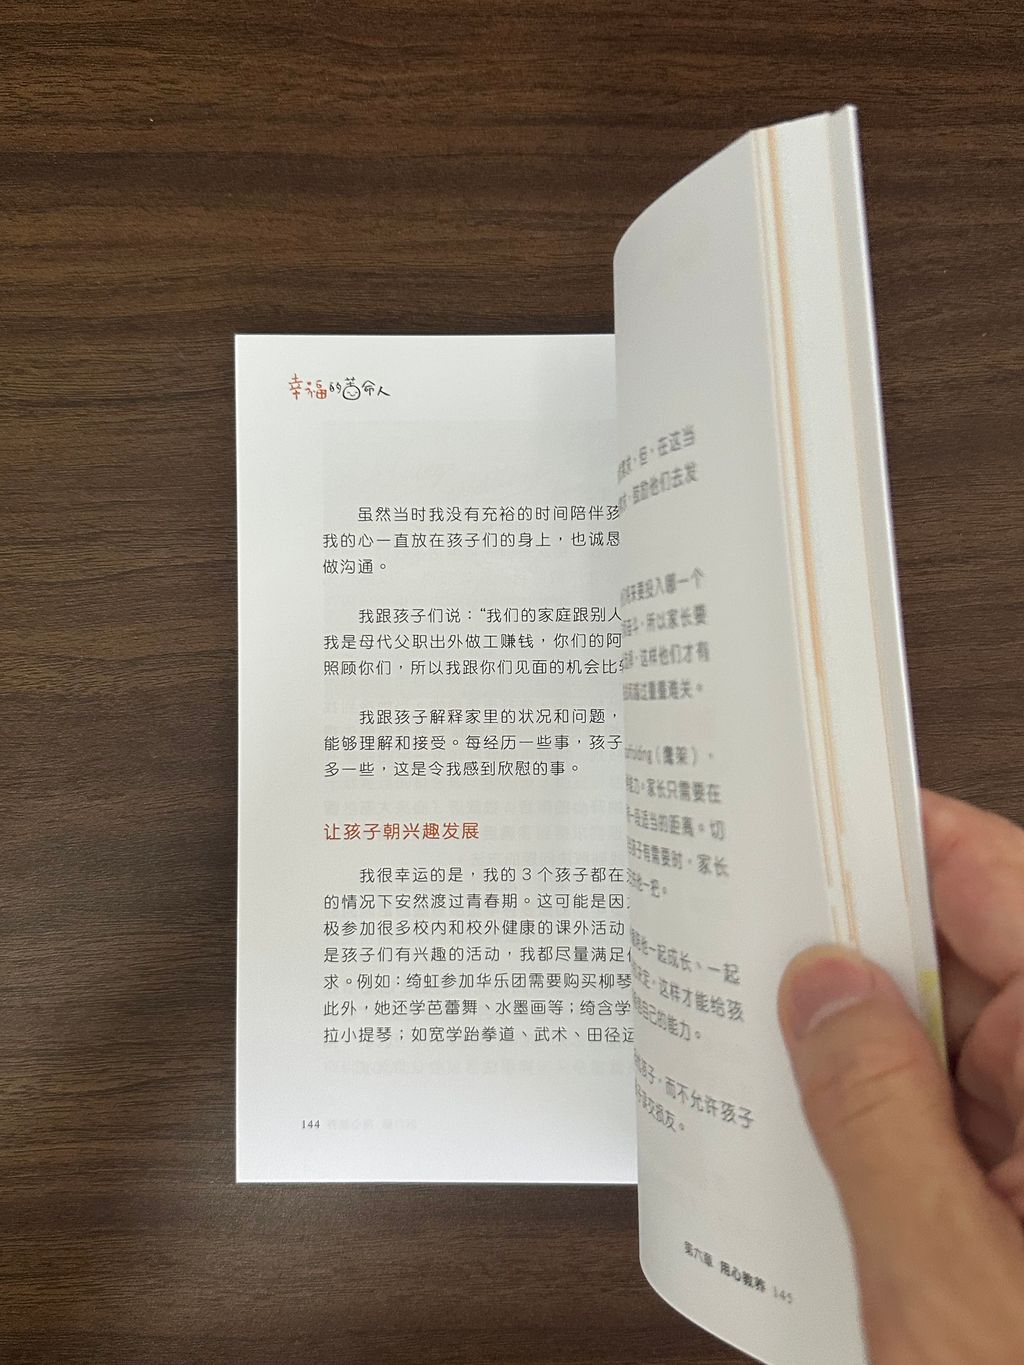 幸福的苦命人
虽然当时我没有充裕的时间陪伴孩
我的心一直放在孩子们的身上，也诚恳
做沟通。
我跟孩子们说：“我们的家庭跟别人
我是母代父职出外做工赚钱，你们的阿
照顾你们，所以我跟你们见面的机会比
我跟孩子解释家里的状况和问题，
能够理解和接受。每经历一些事，孩子
多一些，这是令我感到欣慰的事。
让孩子朝兴趣发展
我很幸运的是，我的3个孩子都在
的情况下安然渡过青春期。这可能是因
极参加很多校内和校外健康的课外活动
是孩子们有兴趣的活动，我都尽量满足
求。例如：绮虹参加华乐团需要购买柳琴
此外，她还学芭蕾舞、水墨画等；绮含学
拉小提琴；如宽学跆拳道、武术、田径运
144
求，但，在这当
鼓励他们去发
来要投入哪一个
奋斗，所以家长要
这样他们才有
过重重难关。
folding（鹰架），
能力。家长只需要在
一段适当的距离。切
孩子有需要时，家长
他一把。
他一起成长、一起
决定，这样才能给孩
自己的能力。
孩子，而不允许孩子
交损友。
第六章 用心教养 145